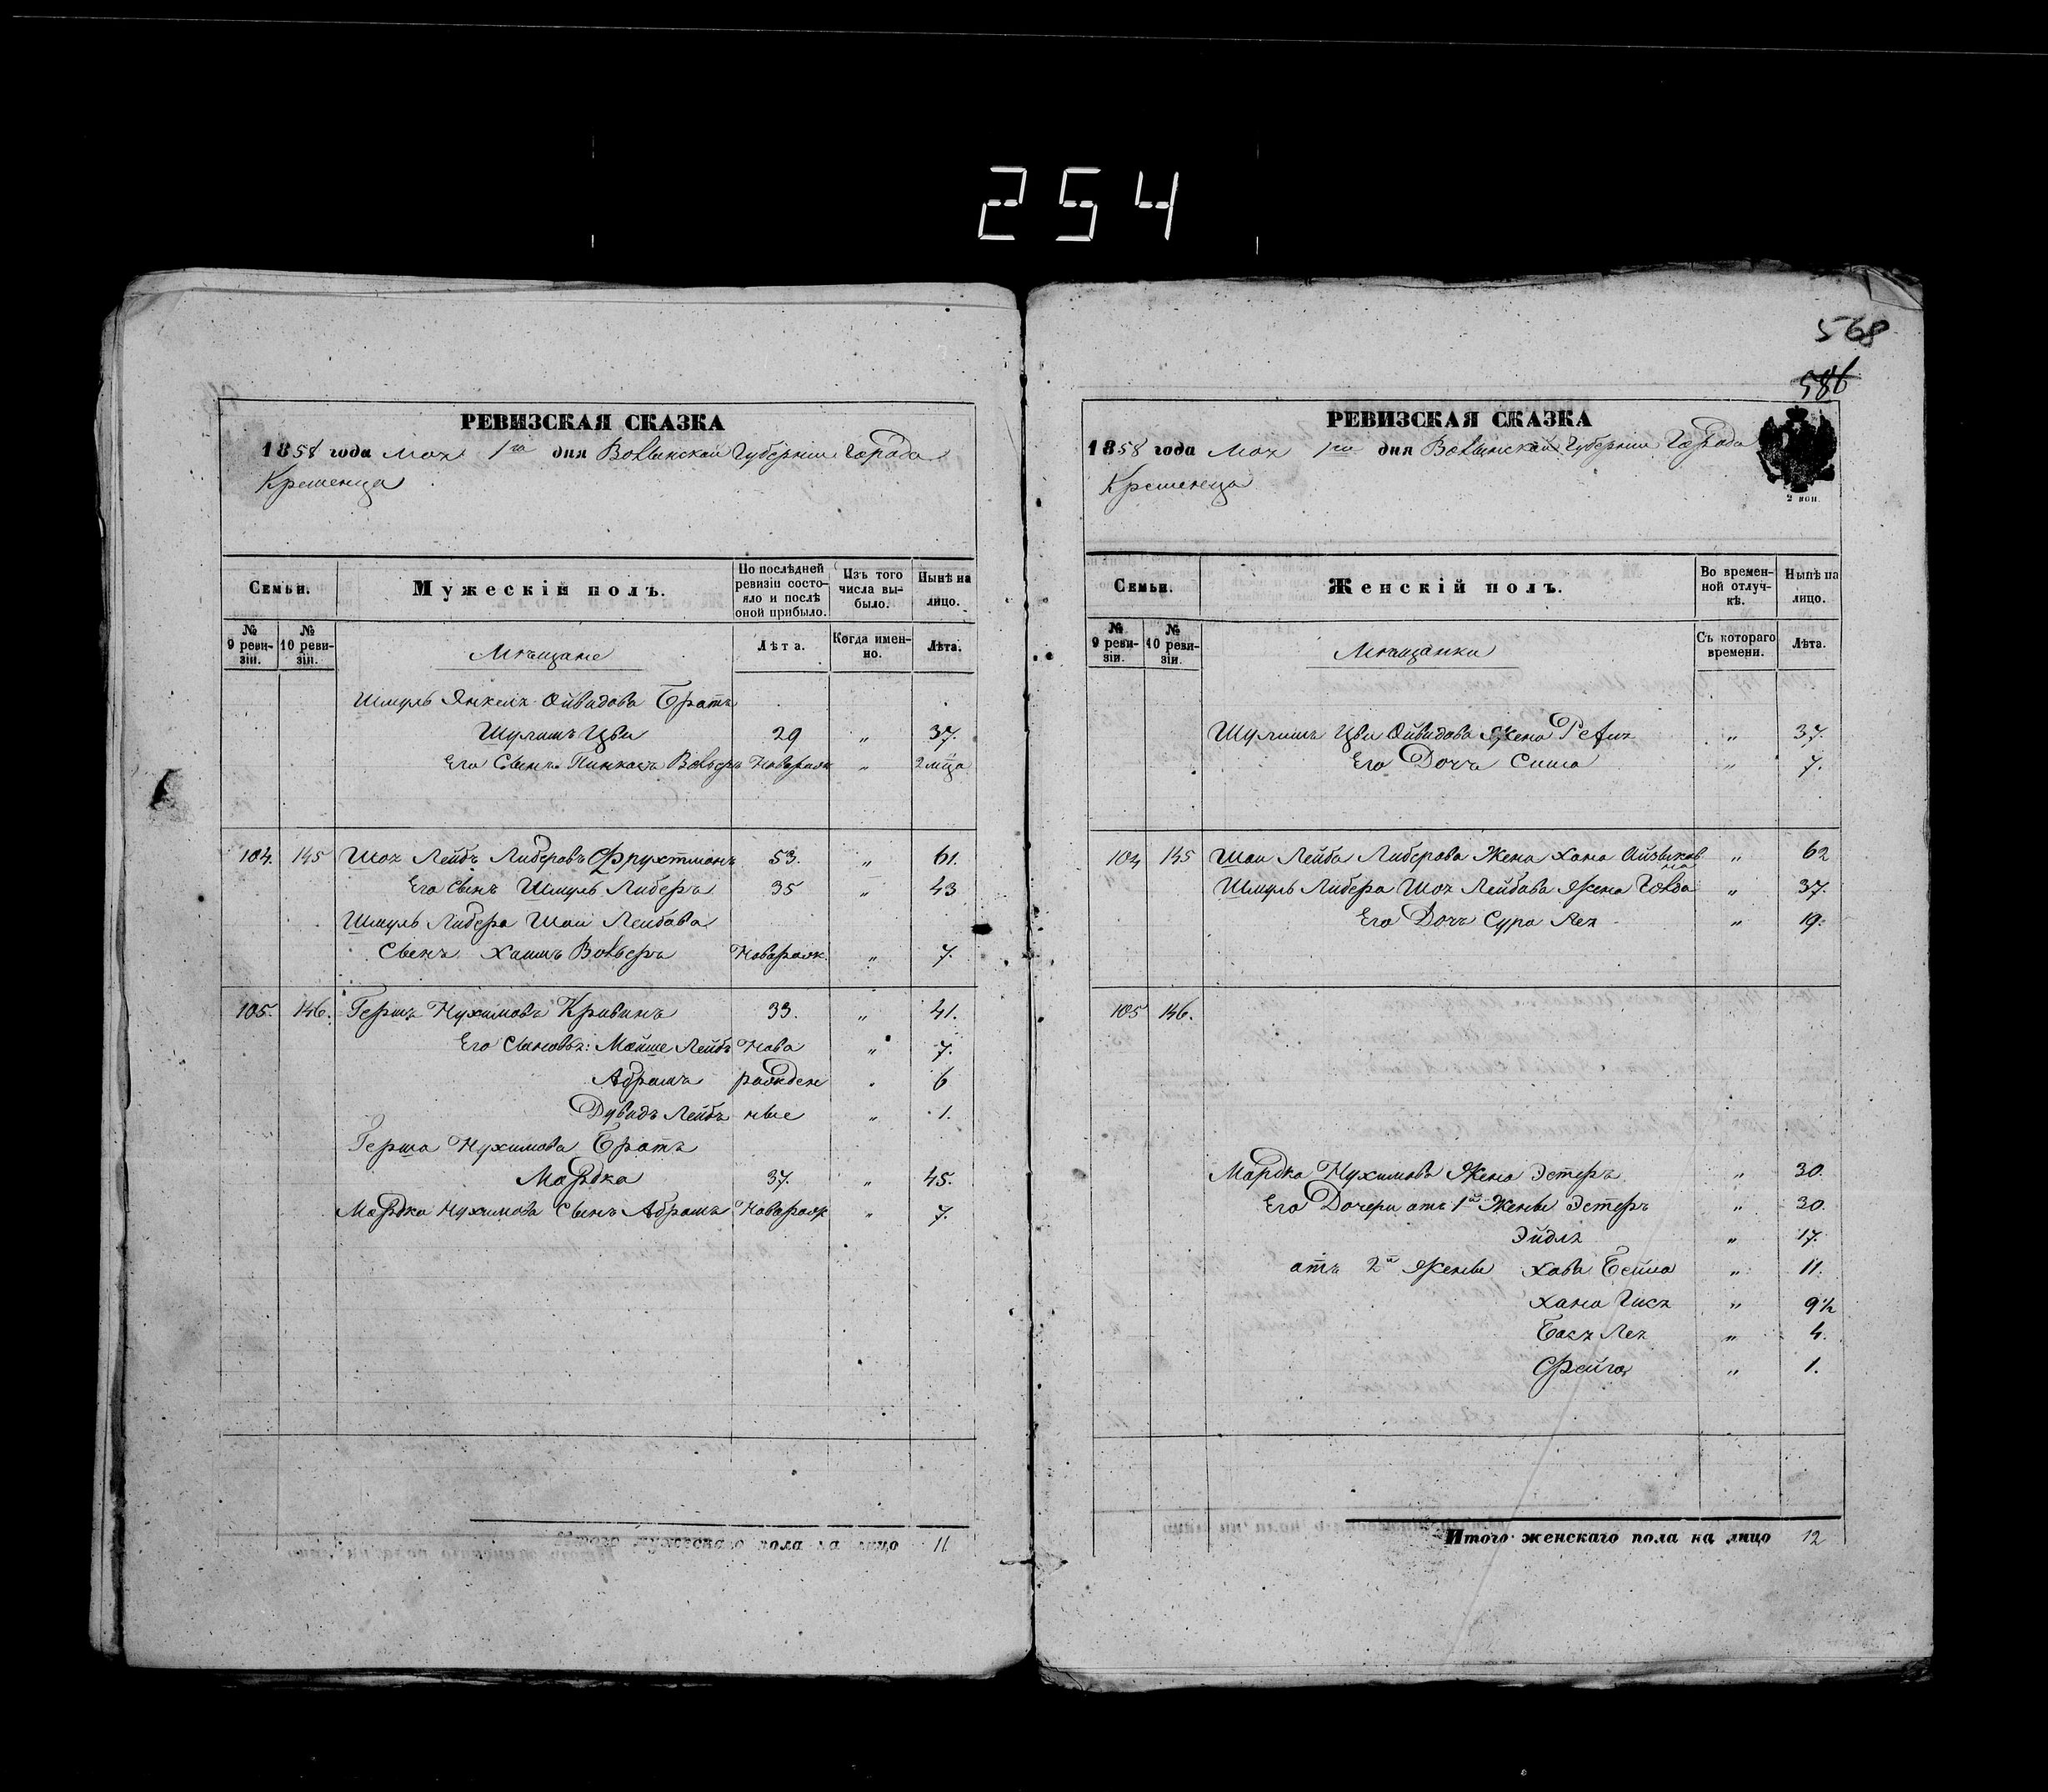 254
РЕВИЗСКАЯ СКАЗКА
1858 года Мая 1го дня Волынской Губернии Города
Кременца
Семьи.
Мужескій полъ.
По послѣдней ревизіи состояло и послѣ оной прибыло.
Изъ того числа выбыло.
Нынѣ на лицо.
№ 9 ревизіи.
№ 10 ревизіи.
Мѣщане
Лѣта.
Когда именно.
Лѣта.
Шмуль Янкеля Ойвидова Братъ
Шулимъ Цви 29 " 37.
Его Сынъ Пинхасъ ВольферъНоворож " 2 м-ца
104. 145 Шая Лейбъ Либеровъ Фрухтманъ 53. " 61.
Его сынъ Шмуль Либеръ 35 " 43
Шмуль Либера Шаи Лейбова
Сынъ Хаимъ Вольферъ Новорож. " 7.
105. 146. Гершъ Нухимовъ Кривинъ 33. " 41.
Его Сыновья: Мойше Лейбъ Ново " 7.
Абрамъ рожден " 6
Дувидъ Лейбъ ные " 1.
Герша Нухимова Братъ
Мордко 37. " 45.
Мордка Нухимова Сынъ Абрамъ Новорож " 7.
Итого мужескаго пола на лицо 11
568
586
РЕВИЗСКАЯ СКАЗКА
1858 года Мая 1го дня Волынской Губернии Города
Кременца
2 коп.
Семьи.
Женскій полъ.
Во временной отлучкѣ.
Нынѣ на лицо.
№ 9 ревизіи.
№ 10 ревизіи.
Мѣщанки
Съ котораго времени.
Лѣта.
Шулима Цви Ойвидова Жена " 37.
Его Дочь Сима " 7.
104 145 Шаи Лейба Либерова Жена Хана Айзиковна " 62
Шмуль Либера Шая Лейбова Жена Голда " 37.
Его Дочь Сура Лея " 19.
105 146.
Мордка Нухимова Жена Эстеръ " 30.
Его Дочери отъ 1й Жены Эстеръ " 30.
Эйдля " 17.
отъ 2й Жены Хава Бейла " 11.
Хана Гися " 9½
Бася Лея " 4.
Фейга " 1.
Итого женскаго пола на лицо 12